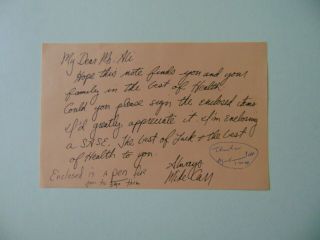 My Dear Mr. Ali
Hope this note finds you and your
family in the best of Health
Could you please sign the enclosed items
I'd greatly appreciate it. I'm enclosing
a SASE. The best of luck + the best
of Health to you.
Always
Mike
Enclosed is a pen for
you to sign them